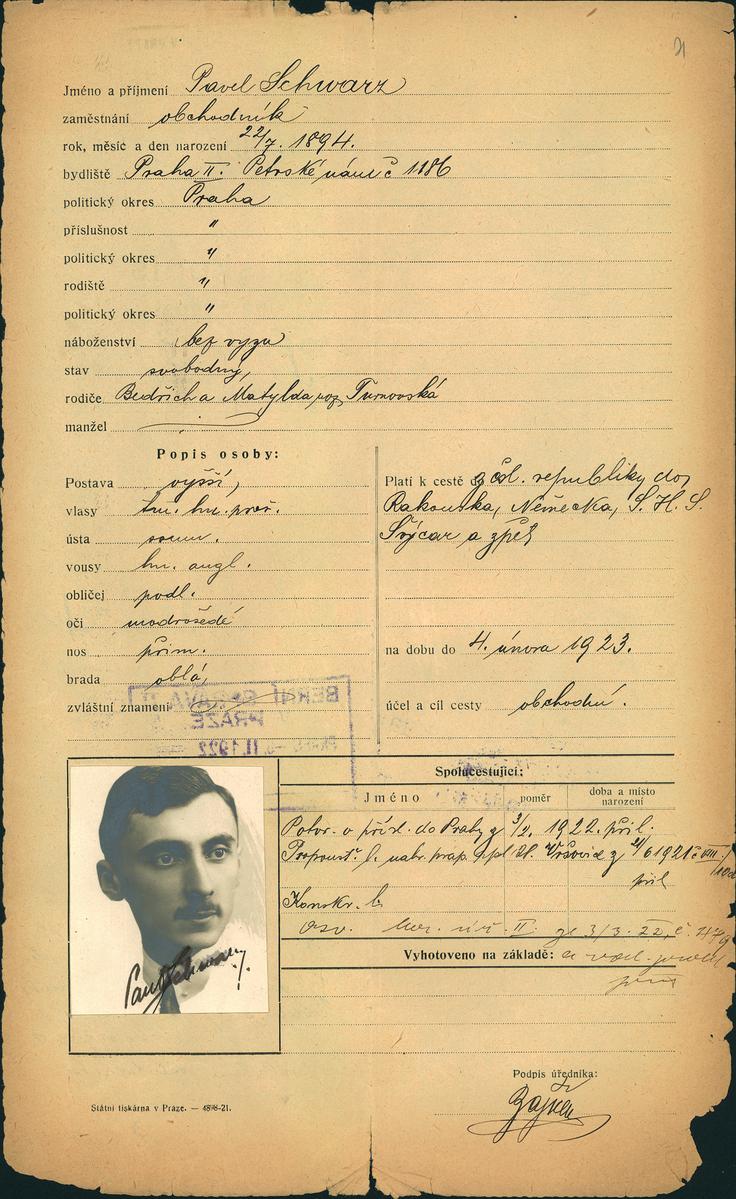 Jméno a příjmení Pavel Schwarz
zaměstnání obchodník
rok, měsíc a den narození 22/7. 1894.
bydliště Praha II. Petrské nám č 1186
politický okres Praha
příslušnost "
politický okres "
rodiště "
politický okres "
náboženství bez vyzn
stav svobodný,
rodiče Bedřich a Matylda roz. Turnovská
manžel
Popis osoby:
Postava vyšší,
vlasy tm. hn. proř.
ústa soum.
vousy hn. angl.
obličej podl.
oči modrošedé
nos přim.
brada oblá,
zvláštní znamení
Platí k cestě do z čsl. republiky do
Rakouska, Německa, S. H. S.
Švýcar a zpět
na dobu do 4. února 1923.
účel a cíl cesty obchodní.
BERNÍ SPRÁVA
PRAZE
II. 1922
Spolucestující:
Jméno poměr doba a místo narození
Potvr. o přísl. do Prahy z 3/2. 1922. příl.
Propoušt. l. Vršovic z 6 1921 č VIII
příl
Konskr. l.
Osv. ber. úř. II. ze 3/3. 22, č.
Vyhotoveno na základě:
Paul Schwarz
Podpis úředníka:
Státní tiskárna v Praze. — 4898-21.